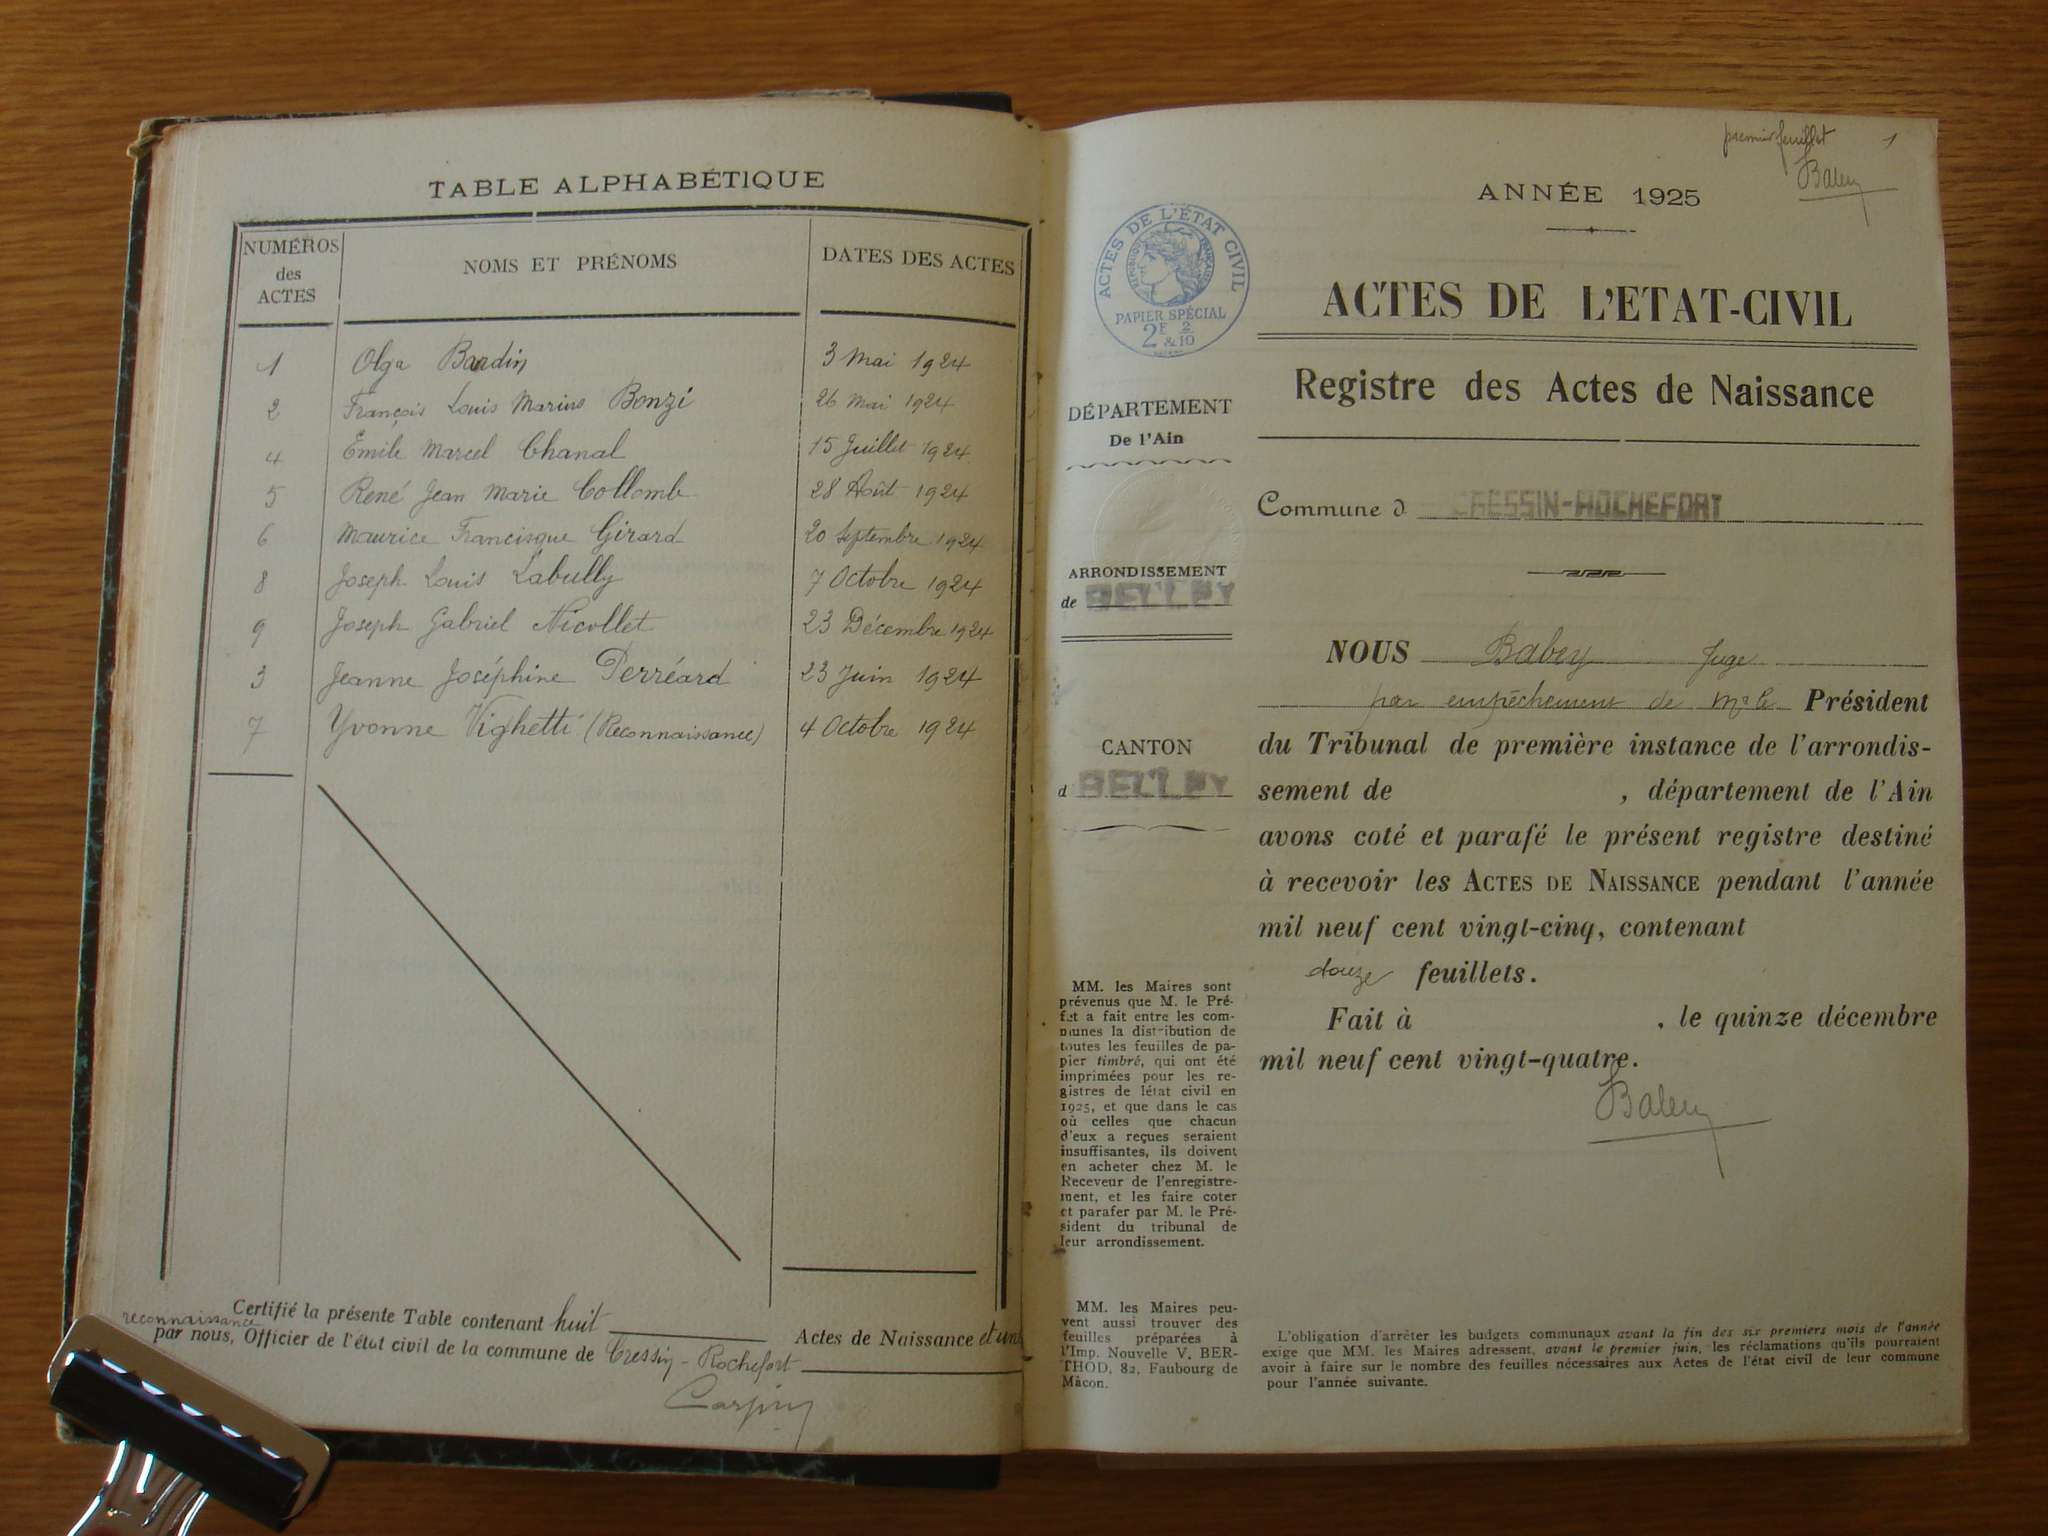 TABLE ALPHABÉTIQUE
NUMÉROS
des
ACTES
NOMS ET PRÉNOMS
DATES DES ACTES
1 Olga Bardin 3 Mai 1924
2 François Louis Marius Bonzi 26 Mai 1924
4 Emile Marcel Chanal 15 Juillet 1924
5 René Jean Marie Collomb 28 Août 1924
6 Maurice Francisque Girard 20 Septembre 1924
8 Joseph Louis Labully 7 Octobre 1924
9 Joseph Gabriel Nicollet 23 Décembre 1924
3 Jeanne Joséphine Perréard 23 Juin 1924
7 Yvonne Vighetti (Reconnaissance) 4 Octobre 1924
Certifié la présente Table contenant huit Actes de Naissance et une
reconnaissance
par nous, Officier de l'état civil de la commune de Cressin-Rochefort
premier feuillet 1
Babey
ANNÉE 1925
ACTES DE L'ÉTAT CIVIL
RÉPUBLIQUE FRANÇAISE
PAPIER SPÉCIAL
2F 2
&10
ACTES DE L'ETAT-CIVIL
Registre des Actes de Naissance
DÉPARTEMENT
De l'Ain
Commune d CRESSIN-ROCHEFORT
ARRONDISSEMENT
de BELLEY
CANTON
d BELLEY
NOUS Babey Juge
par empêchement de Mr le Président
du Tribunal de première instance de l'arrondis-
sement de , département de l'Ain
avons coté et parafé le présent registre destiné
à recevoir les ACTES DE NAISSANCE pendant l'année
mil neuf cent vingt-cinq, contenant
douze feuillets.
Fait à , le quinze décembre
mil neuf cent vingt-quatre.
Babey
MM. les Maires sont
prévenus que M. le Pré-
fet a fait entre les com-
munes la distribution de
toutes les feuilles de pa-
pier timbré, qui ont été
imprimées pour les re-
gistres de létat civil en
1925, et que dans le cas
où celles que chacun
d'eux a reçues seraient
insuffisantes, ils doivent
en acheter chez M. le
Receveur de l'enregistre-
ment, et les faire coter
et parafer par M. le Pré-
sident du tribunal de
leur arrondissement.
MM. les Maires peu-
vent aussi trouver des
feuilles préparées à
l'Imp. Nouvelle V. BER-
THOD, 82, Faubourg de
Mâcon.
L'obligation d'arrêter les budgets communaux avant la fin des six premiers mois de l'année
exige que MM. les Maires adressent, avant le premier juin, les réclamations qu'ils pourraient
avoir à faire sur le nombre des feuilles nécessaires aux Actes de l'état civil de leur commune
pour l'année suivante.